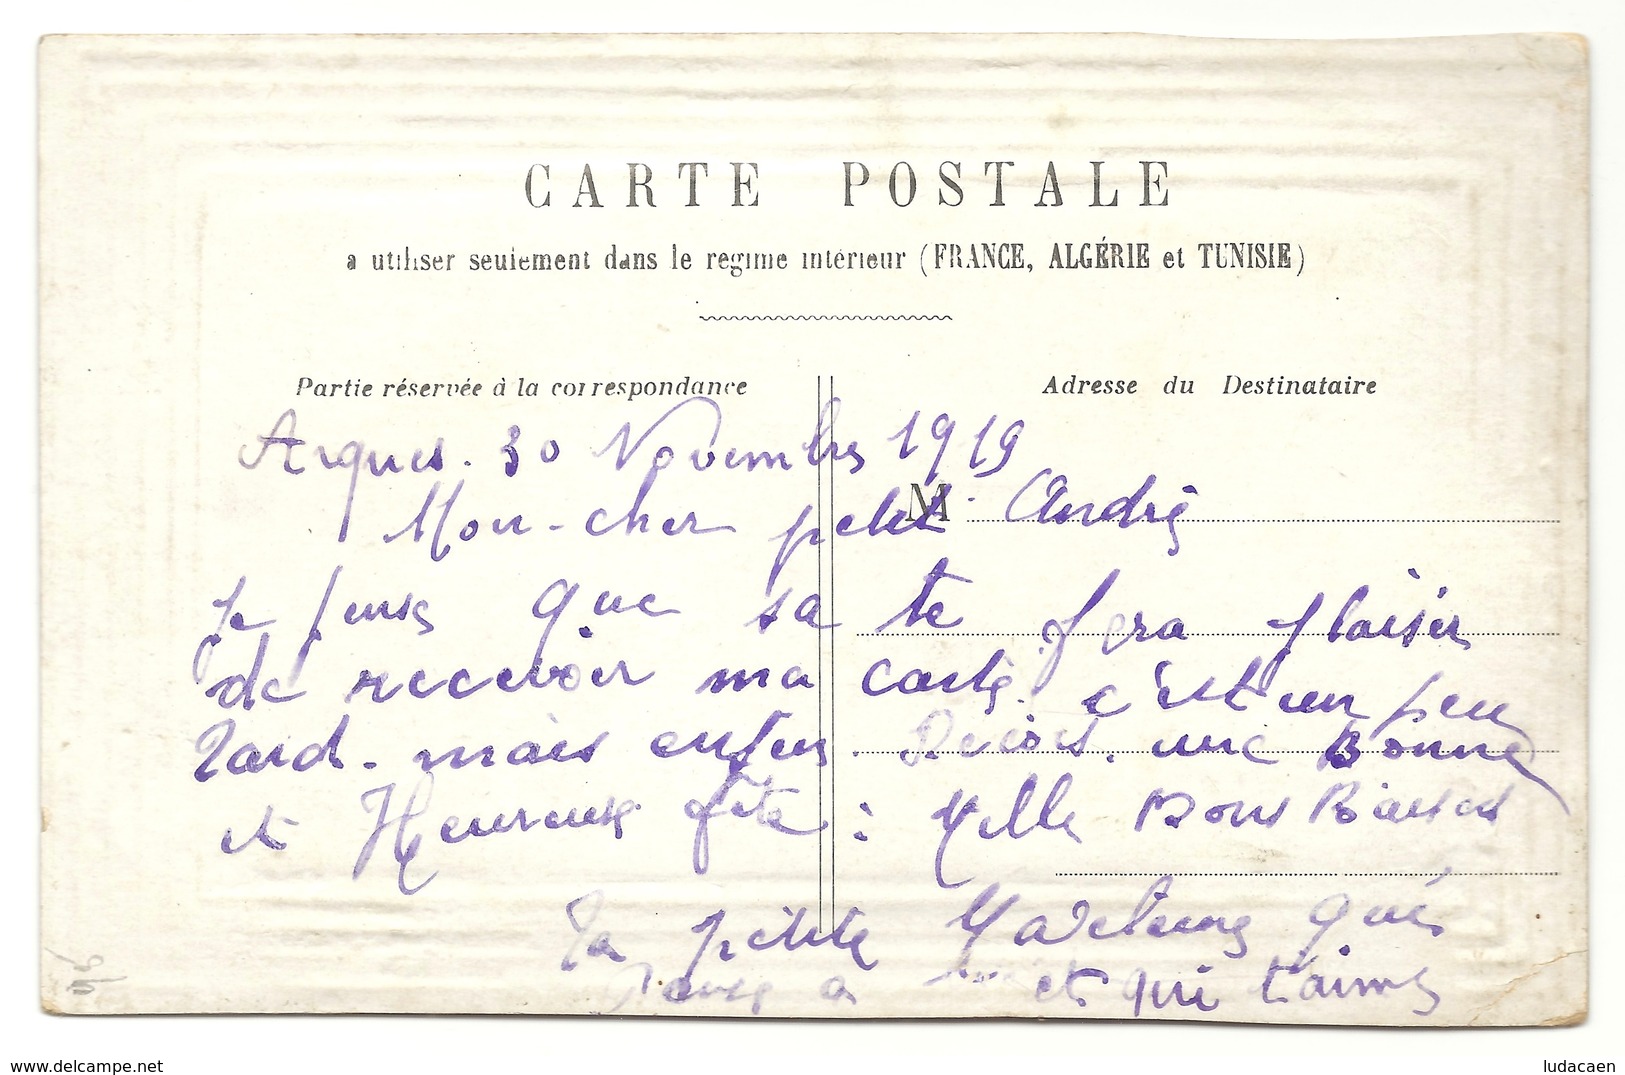 CARTE POSTALE
a utiliser seulement dans le regime intérieur (FRANCE, ALGÉRIE et TUNISIE)
Partie réservée à la correspondance
Adresse du Destinataire
Arques. 30 Novembre 1919
M
Mon cher petit André
je pense que sa te fera plaisir
de recevoir ma carte. c'est un peu
tard. mais enfin. Reçois. une Bonne
et Heureuse fête : Mille Bons Baisers
Ta petite Madeleine qui
pense a et qui t'aime
www.delcampe.net
ludacaen